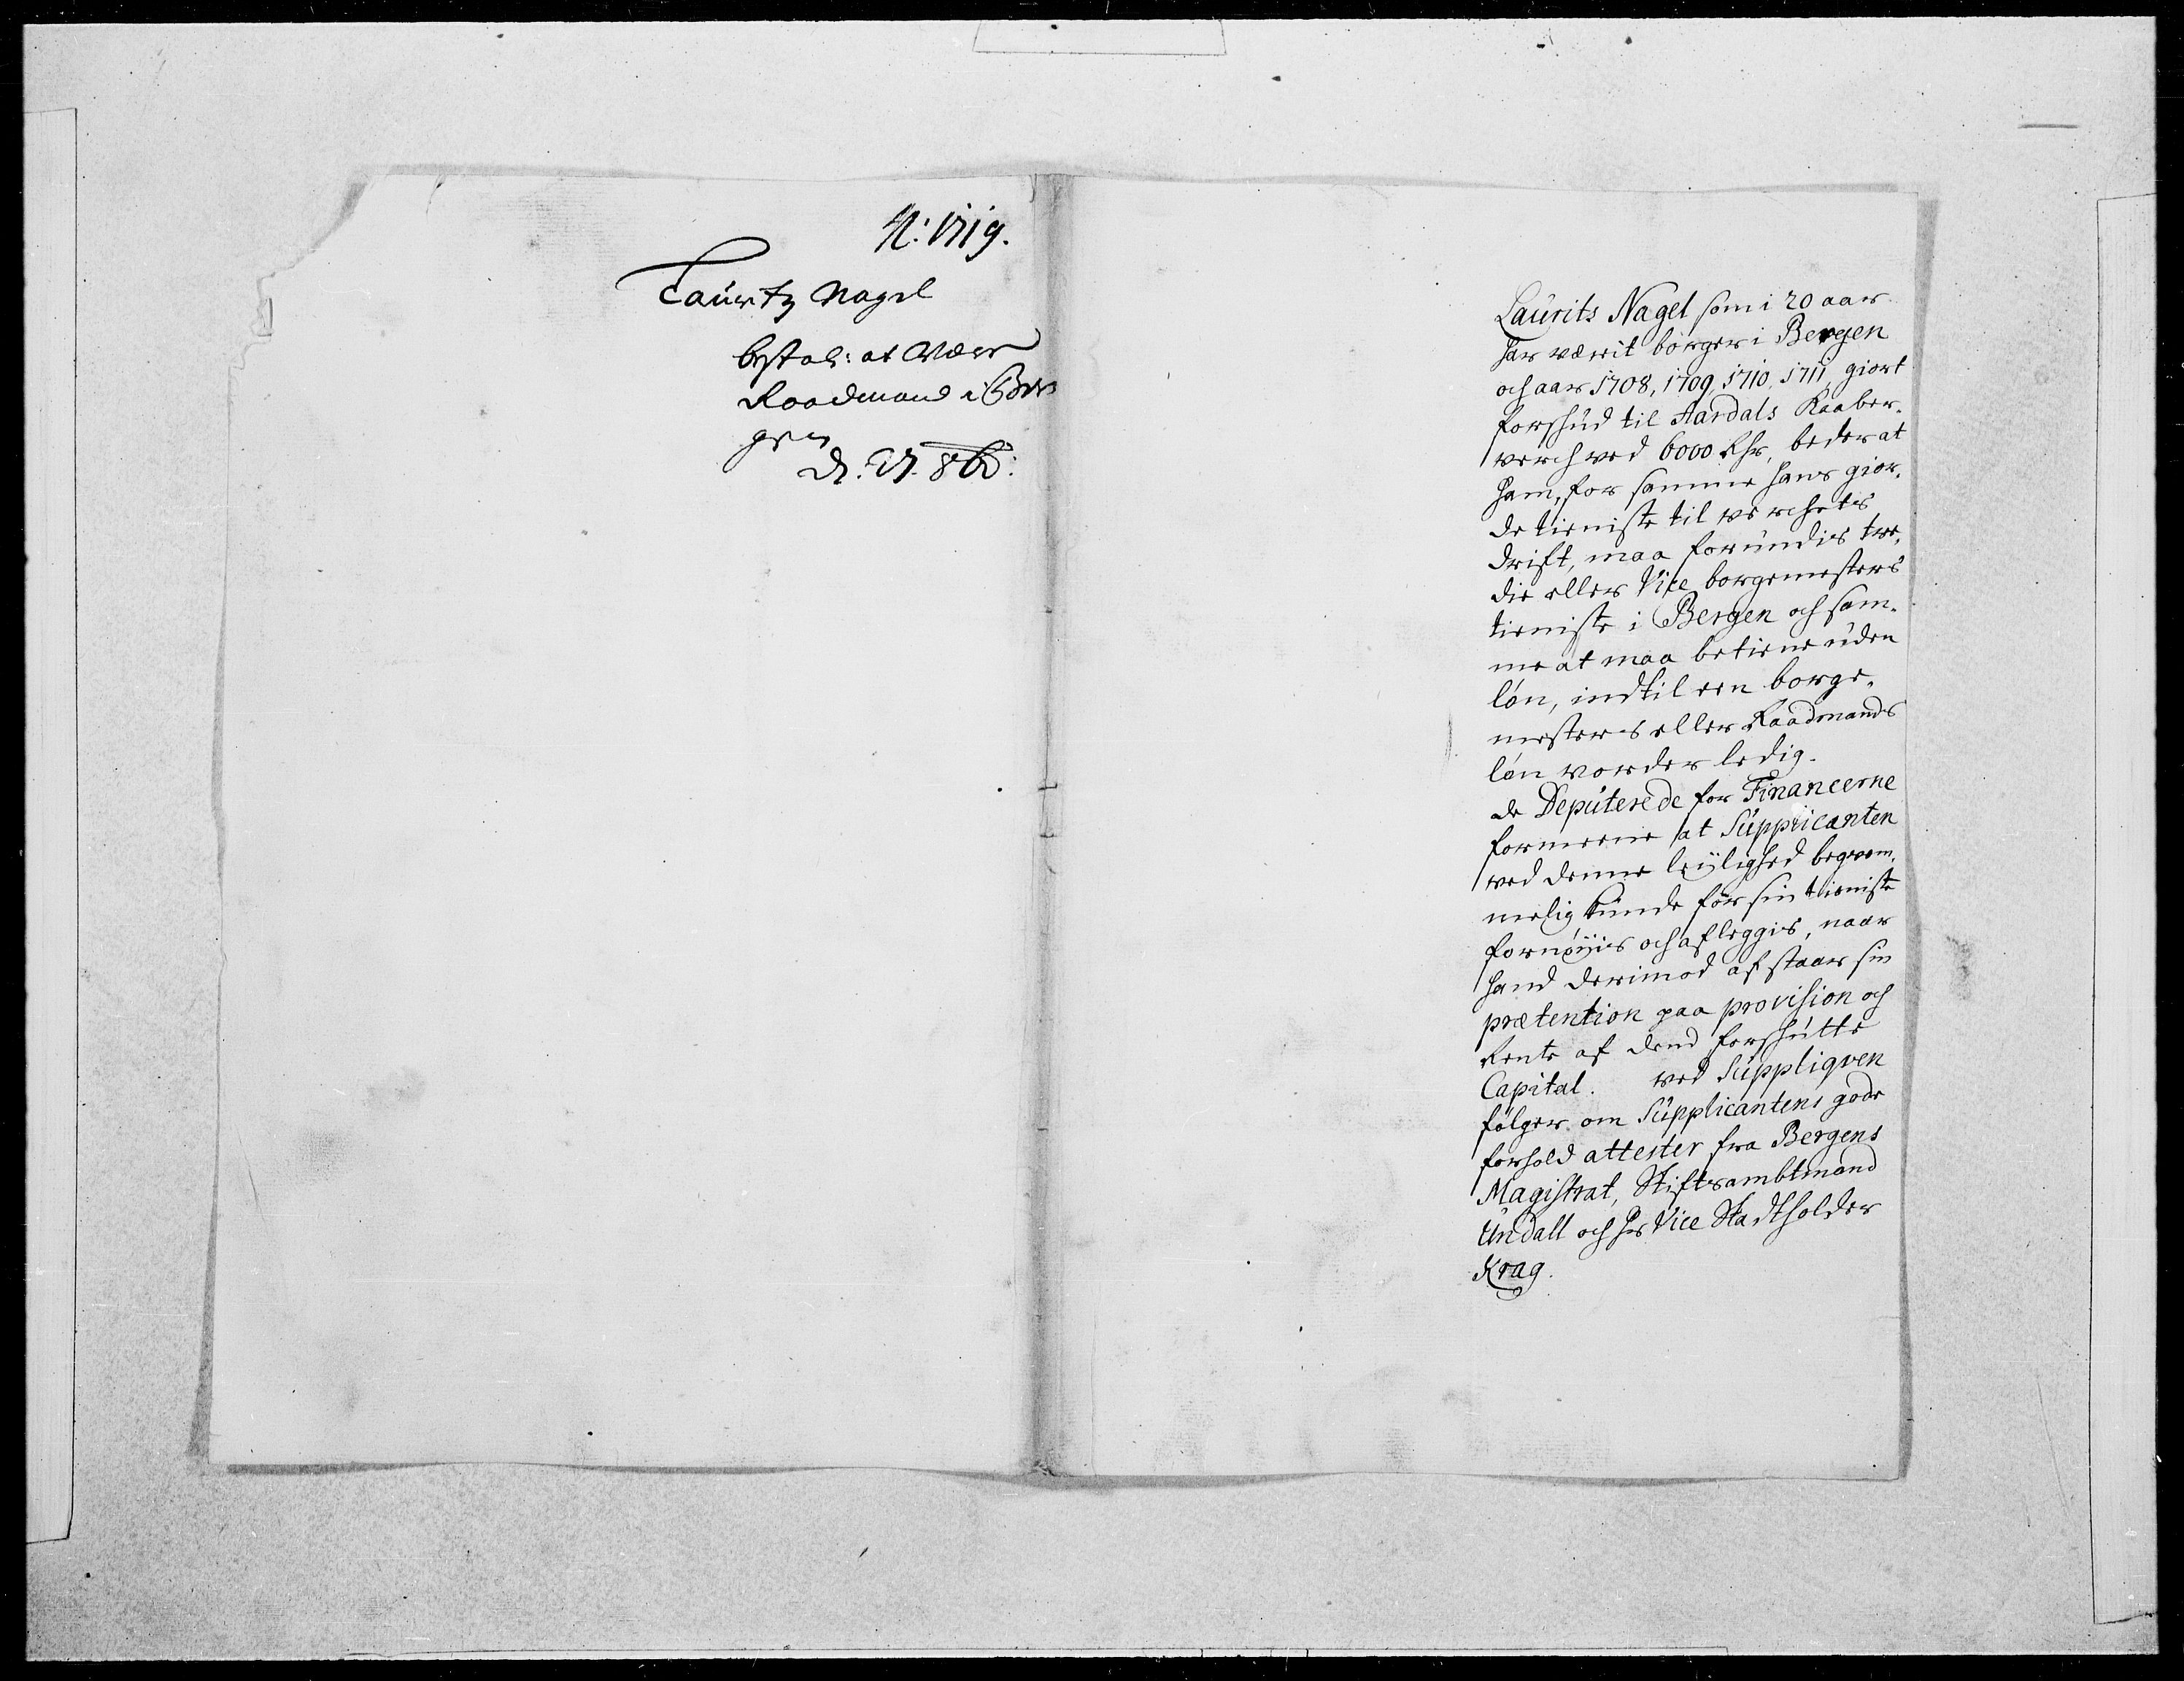 A: 1719.
Lauritz Nagel
bestal: at være
Raadmand i Ber
gen
D. 27. 8br:
Laurits Nagel som i 20 aar
har værit borger i Bergen
och aar 1708, 1709, 1710, 1711, giort
forshud til Aardals Kaaber-
werch ved 6000 Rhr, beder at
ham, for samme hans gior-
de tieniste til werchets
drift, maa forundis tre-
die eller Vice borgemesters
tieniste i Bergen och sam-
me at maa betiene uden
løn, indtil een borge-
mesters eller Raadmands
løn worder ledig.
de Deputerede for Financerne
formeene at Supplicanten
ved denne leylighed beqvem-
melig kunde for sin tieniste
fornøyis och aflegges, naar
hand derimod afstaar sin
prætention paa provision och
Rente af dend forshutte
Capital. ved Suppliqven
følger om Supplicantens gode
forhold attester fra Bergens
Magistrat, Stiftsambtmand
Undall och hr Vice Stadtholder
Krag.